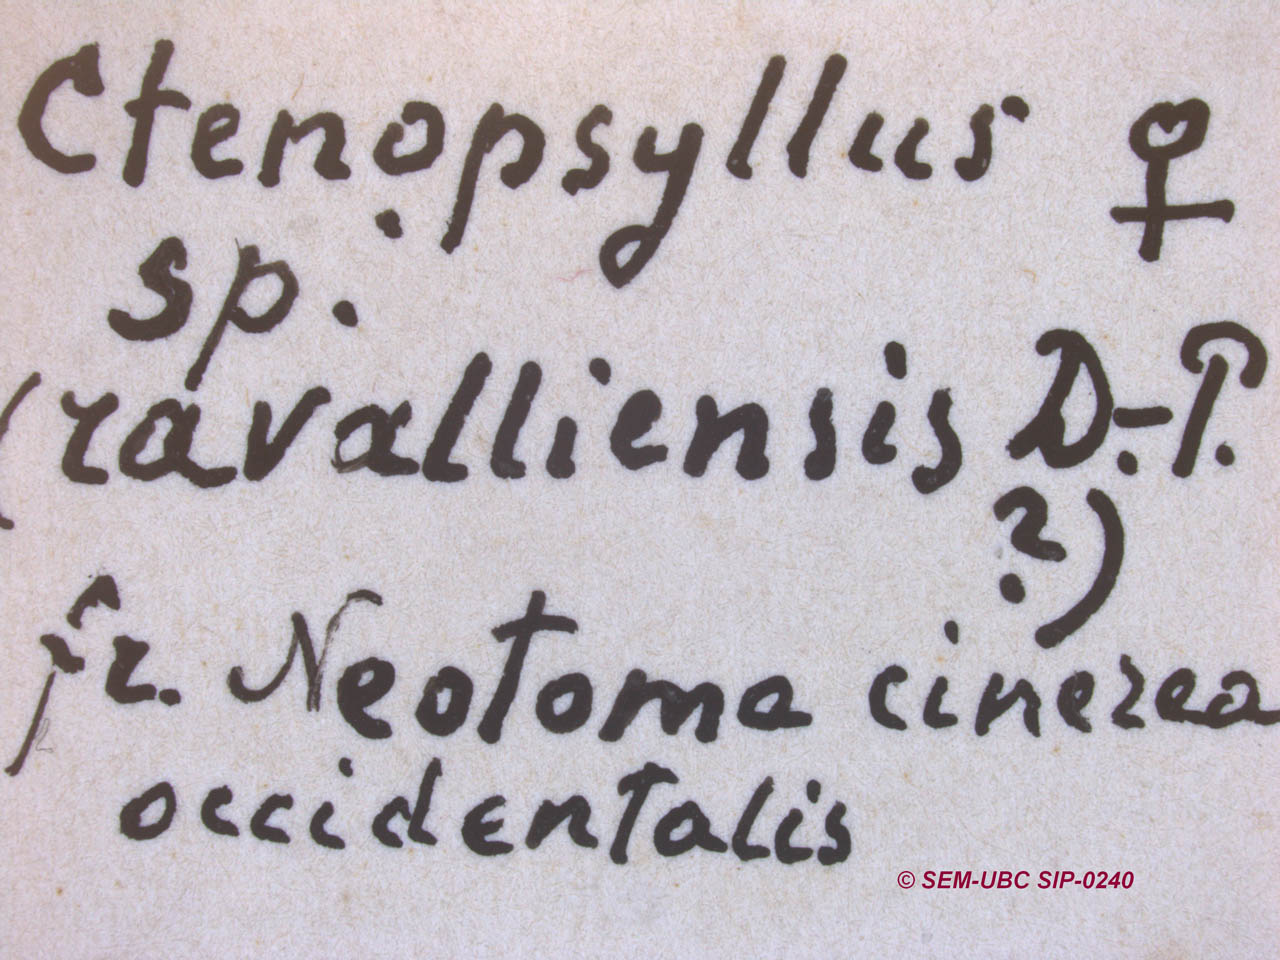 Ctenopsyllus ♀
sp.
(ravalliensis D.-P.
?)
fr. Neotoma cinerea
occidentalis
© SEM-UBC SIP-0240